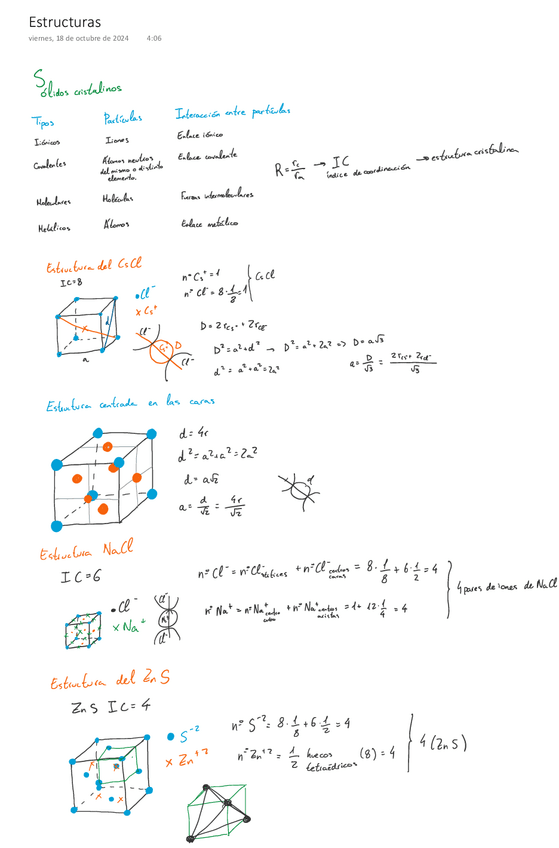 Estructuras
viernes, 18 de octubre de 2024 4:06
Sólidos cristalinos
Tipos Partículas Interacción entre partículas
Iónicos Iones Enlace iónico
Covalentes Átomos neutros del mismo o distinto elemento. Enlace covalente
R = rc/ra → IC índice de coordinación → estructura cristalina
Moleculares Moléculas Fuerzas intermoleculares
Metálicos Átomos Enlace metálico
Estructura del CsCl
IC=8
• Cl⁻
x Cs⁺
nº Cs⁺ = 1
nº Cl⁻ = 8·1/8 = 1
CsCl
a
d
Cl⁻
Cs⁺
D
Cl⁻
D = 2rCs⁺ + 2rCl⁻
D² = a² + d² → D² = a² + 2a² => D = a√3
d² = a² + a² = 2a²
a = D/√3 = 2rCs⁺ + 2rCl⁻/√3
Estructura centrada en las caras
d = 4r
d² = a² + a² = 2a²
d = a√2
a = d/√2 = 4r/√2
d
Estructura NaCl
IC=6
• Cl⁻
x Na⁺
Cl⁻
Na⁺
Cl⁻
nº Cl⁻ = nº Cl⁻ vértices + nº Cl⁻ centros caras = 8·1/8 + 6·1/2 = 4
nº Na⁺ = nº Na⁺ centro cubo + nº Na⁺ centros aristas = 1 + 12·1/4 = 4
4 pares de iones de NaCl
Estructura del ZnS
ZnS IC=4
• S⁻²
x Zn⁺²
nº S⁻² = 8·1/8 + 6·1/2 = 4
nº Zn⁺² = 1/2 huecos tetraédricos (8) = 4
4 (ZnS)